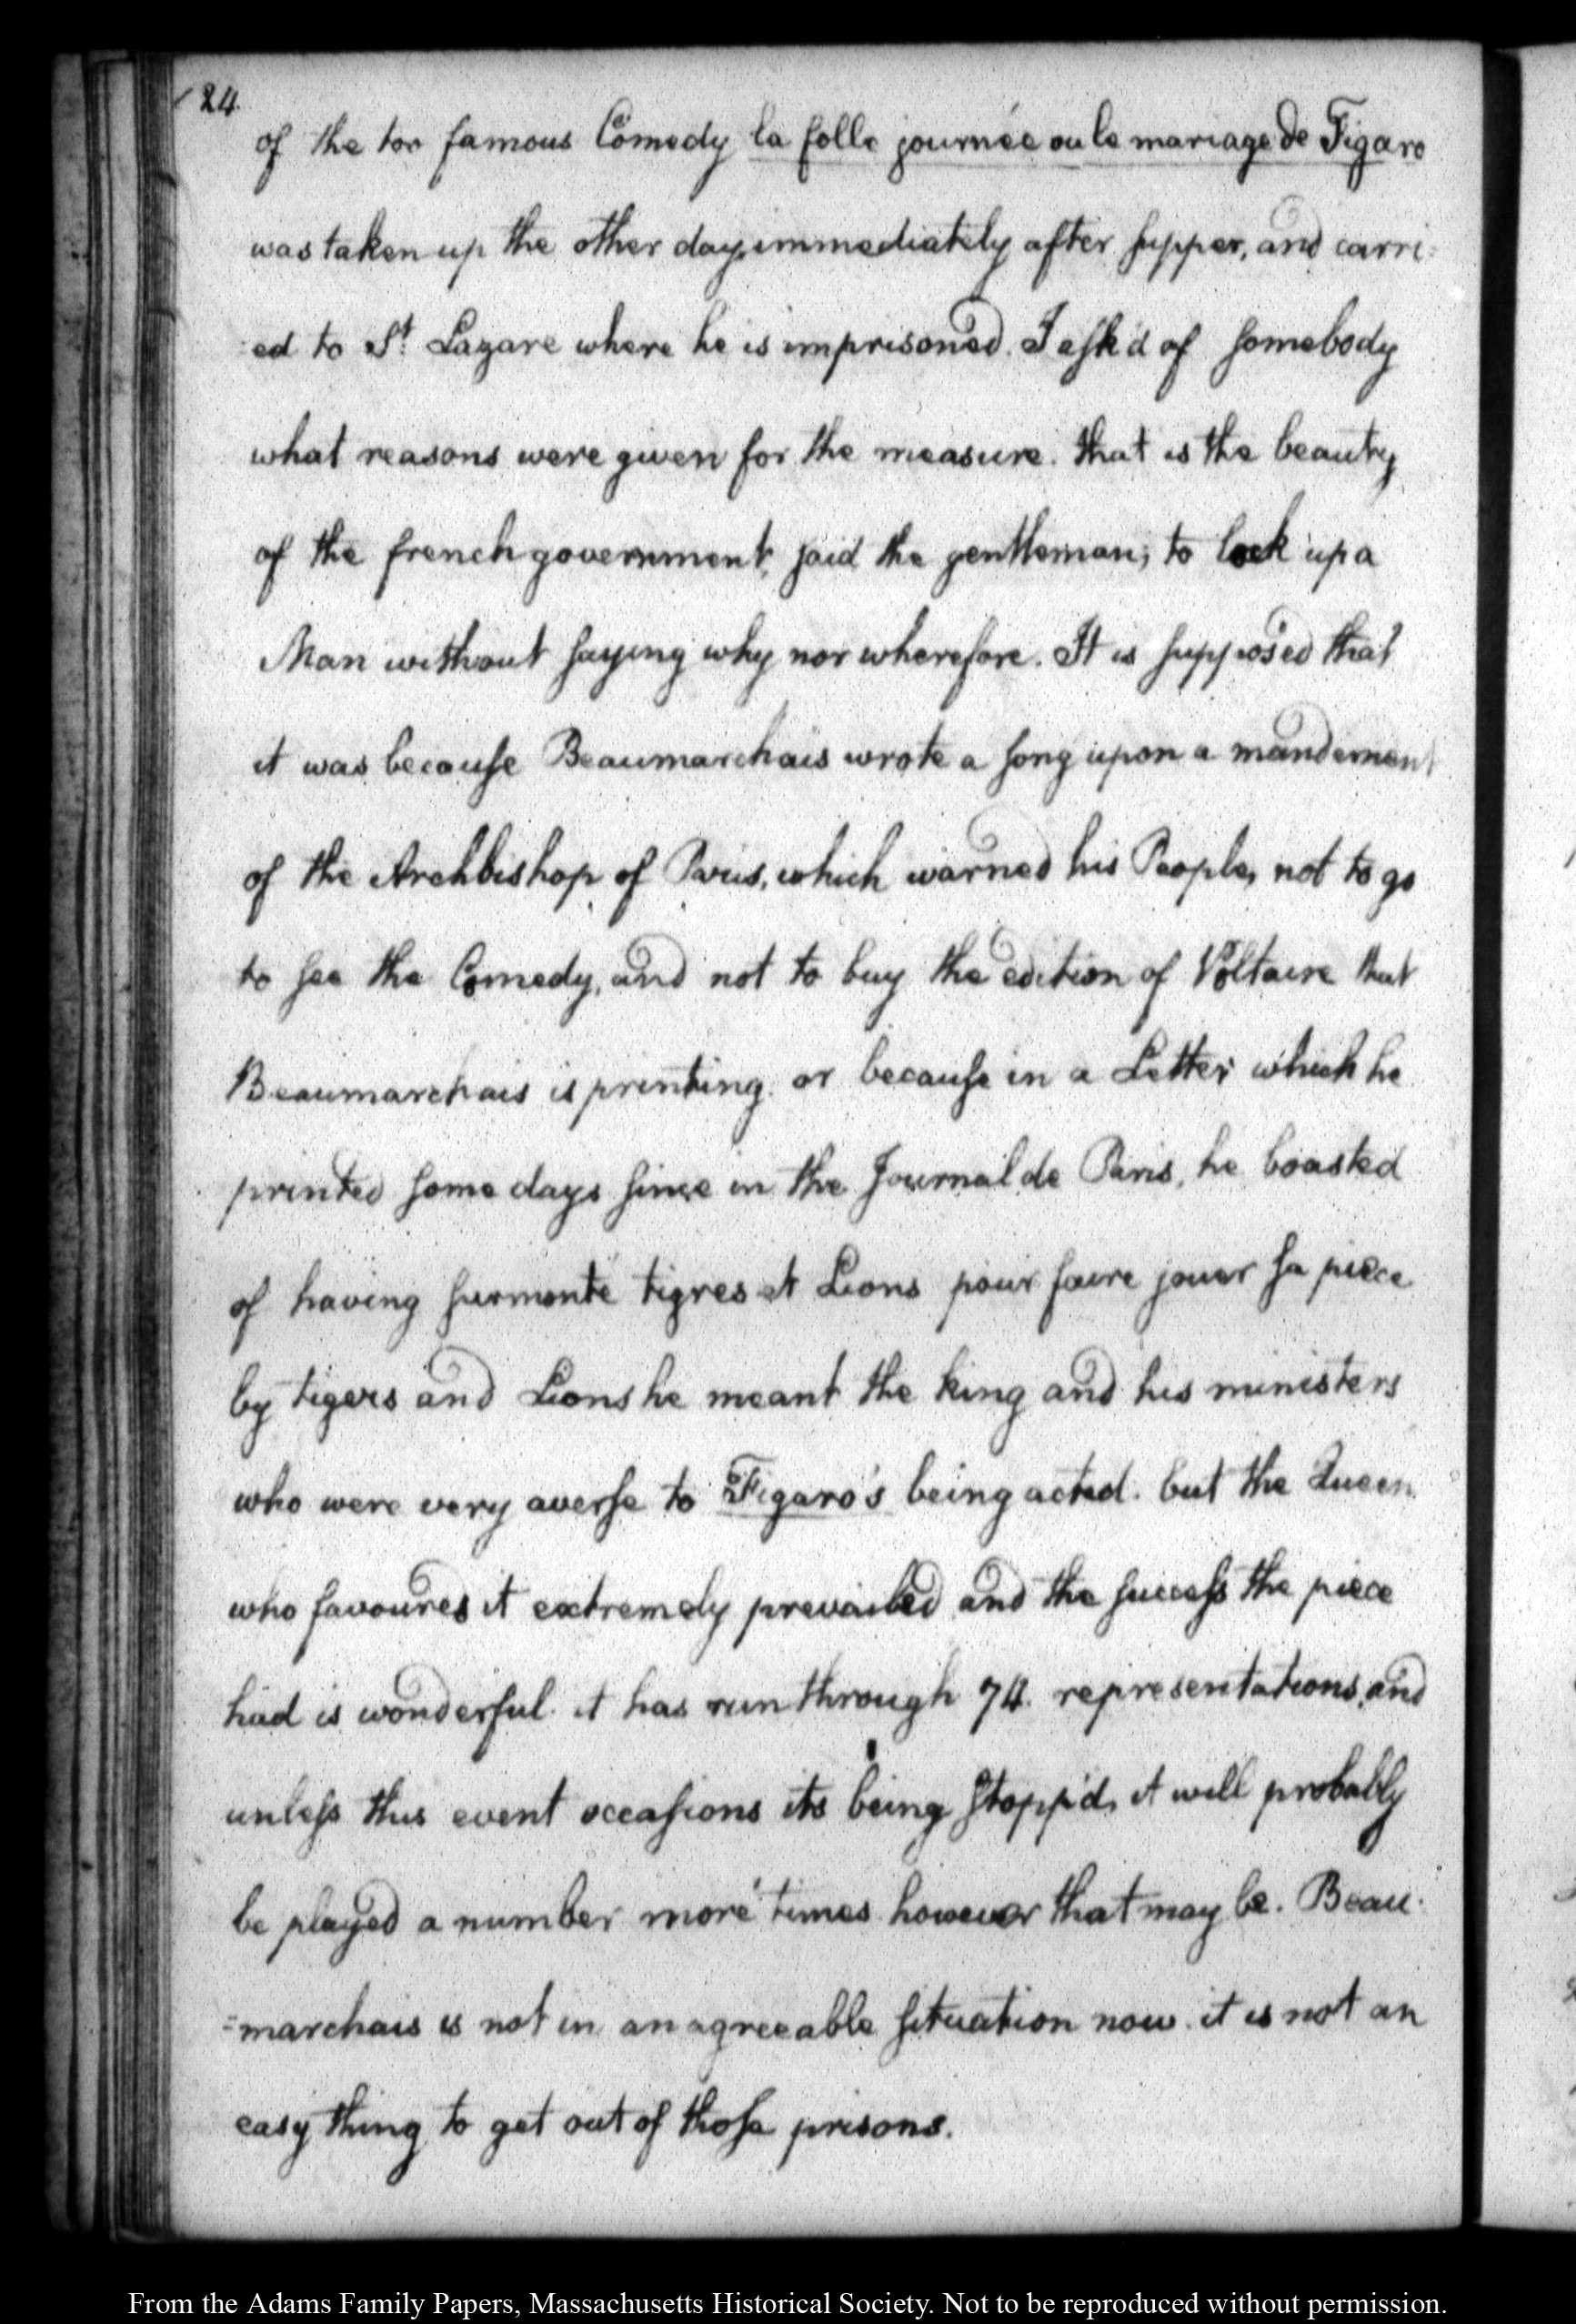 124.
of the too famous Comedy la folle journée ou le mariage de Figaro
was taken up the other day, immediately after supper, and carri-
ed to St. Lazare where he is imprisoned. I ask'd of somebody
what reasons were given for the measure. that is the beauty
of the french government, said the gentleman; to lock up a
Man without saying why nor wherefore. It is supposed that
it was because Beaumarchais wrote a song upon a mandement
of the Archbishop of Paris, which warned his People, not to go
to see the Comedy, and not to buy the edition of Voltaire that
Beaumarchais is printing. or because in a Letter which he
printed some days since in the Journal de Paris, he boasted
of having surmonté tigres et Lions pour faire jouer sa piece
by tigers and Lions he meant the king and his ministers
who were very averse to Figaro's being acted. but the Queen
who favoured it extremely prevailed and the success the piece
had is wonderful. it has run through 74. representations, and
unless this event occasions its being stopp'd, it will probably
be played a number more times however that may be. Beau-
=marchais is not in an agreeable situation now. it is not an
easy thing to get out of those prisons.
From the Adams Family Papers, Massachusetts Historical Society. Not to be reproduced without permission.